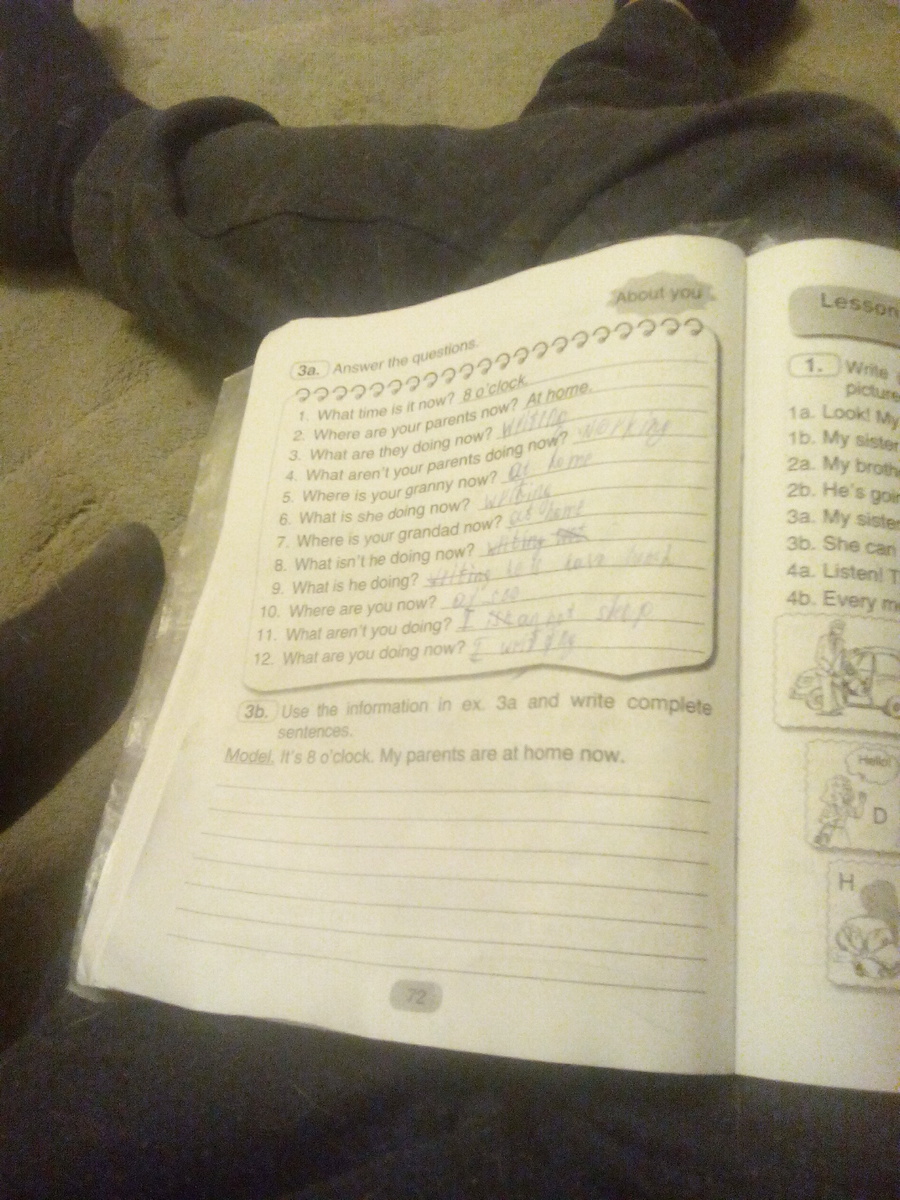 About you
3a. Answer the questions.
1. What time is it now? 8 o'clock.
2. Where are your parents now? At home.
3. What are they doing now? writing
4. What aren't your parents doing now? working
5. Where is your granny now? at home
6. What is she doing now? writing
7. Where is your grandad now? at home
8. What isn't he doing now?
9. What is he doing? have lunch
10. Where are you now?
11. What aren't you doing? I
12. What are you doing now? I
3b. Use the information in ex. 3a and write complete
sentences.
Model. It's 8 o'clock. My parents are at home now.
72
Lesson
1. Write
picture
1a. Look! My
1b. My sister
2a. My broth
2b. He's goin
3a. My siste
3b. She can
4a. Listen! T
4b. Every m
Hello!
D
H